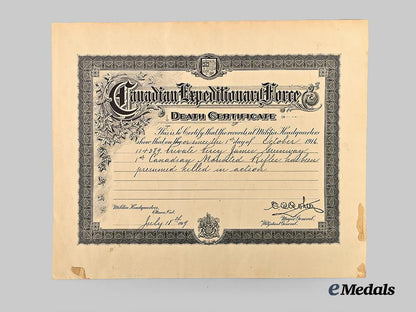 Canadian Expeditionary Force
DEATH CERTIFICATE
This is to Certify that the records at Militia Headquarters
show that on or since the 1st day of October 1916
114389, Private Percy James
1st Canadian Mounted Rifles has been
presumed killed in action
Militia Headquarters
Ottawa, Ont.
July 15th 1919
Major General,
Adjutant General.
eMedals